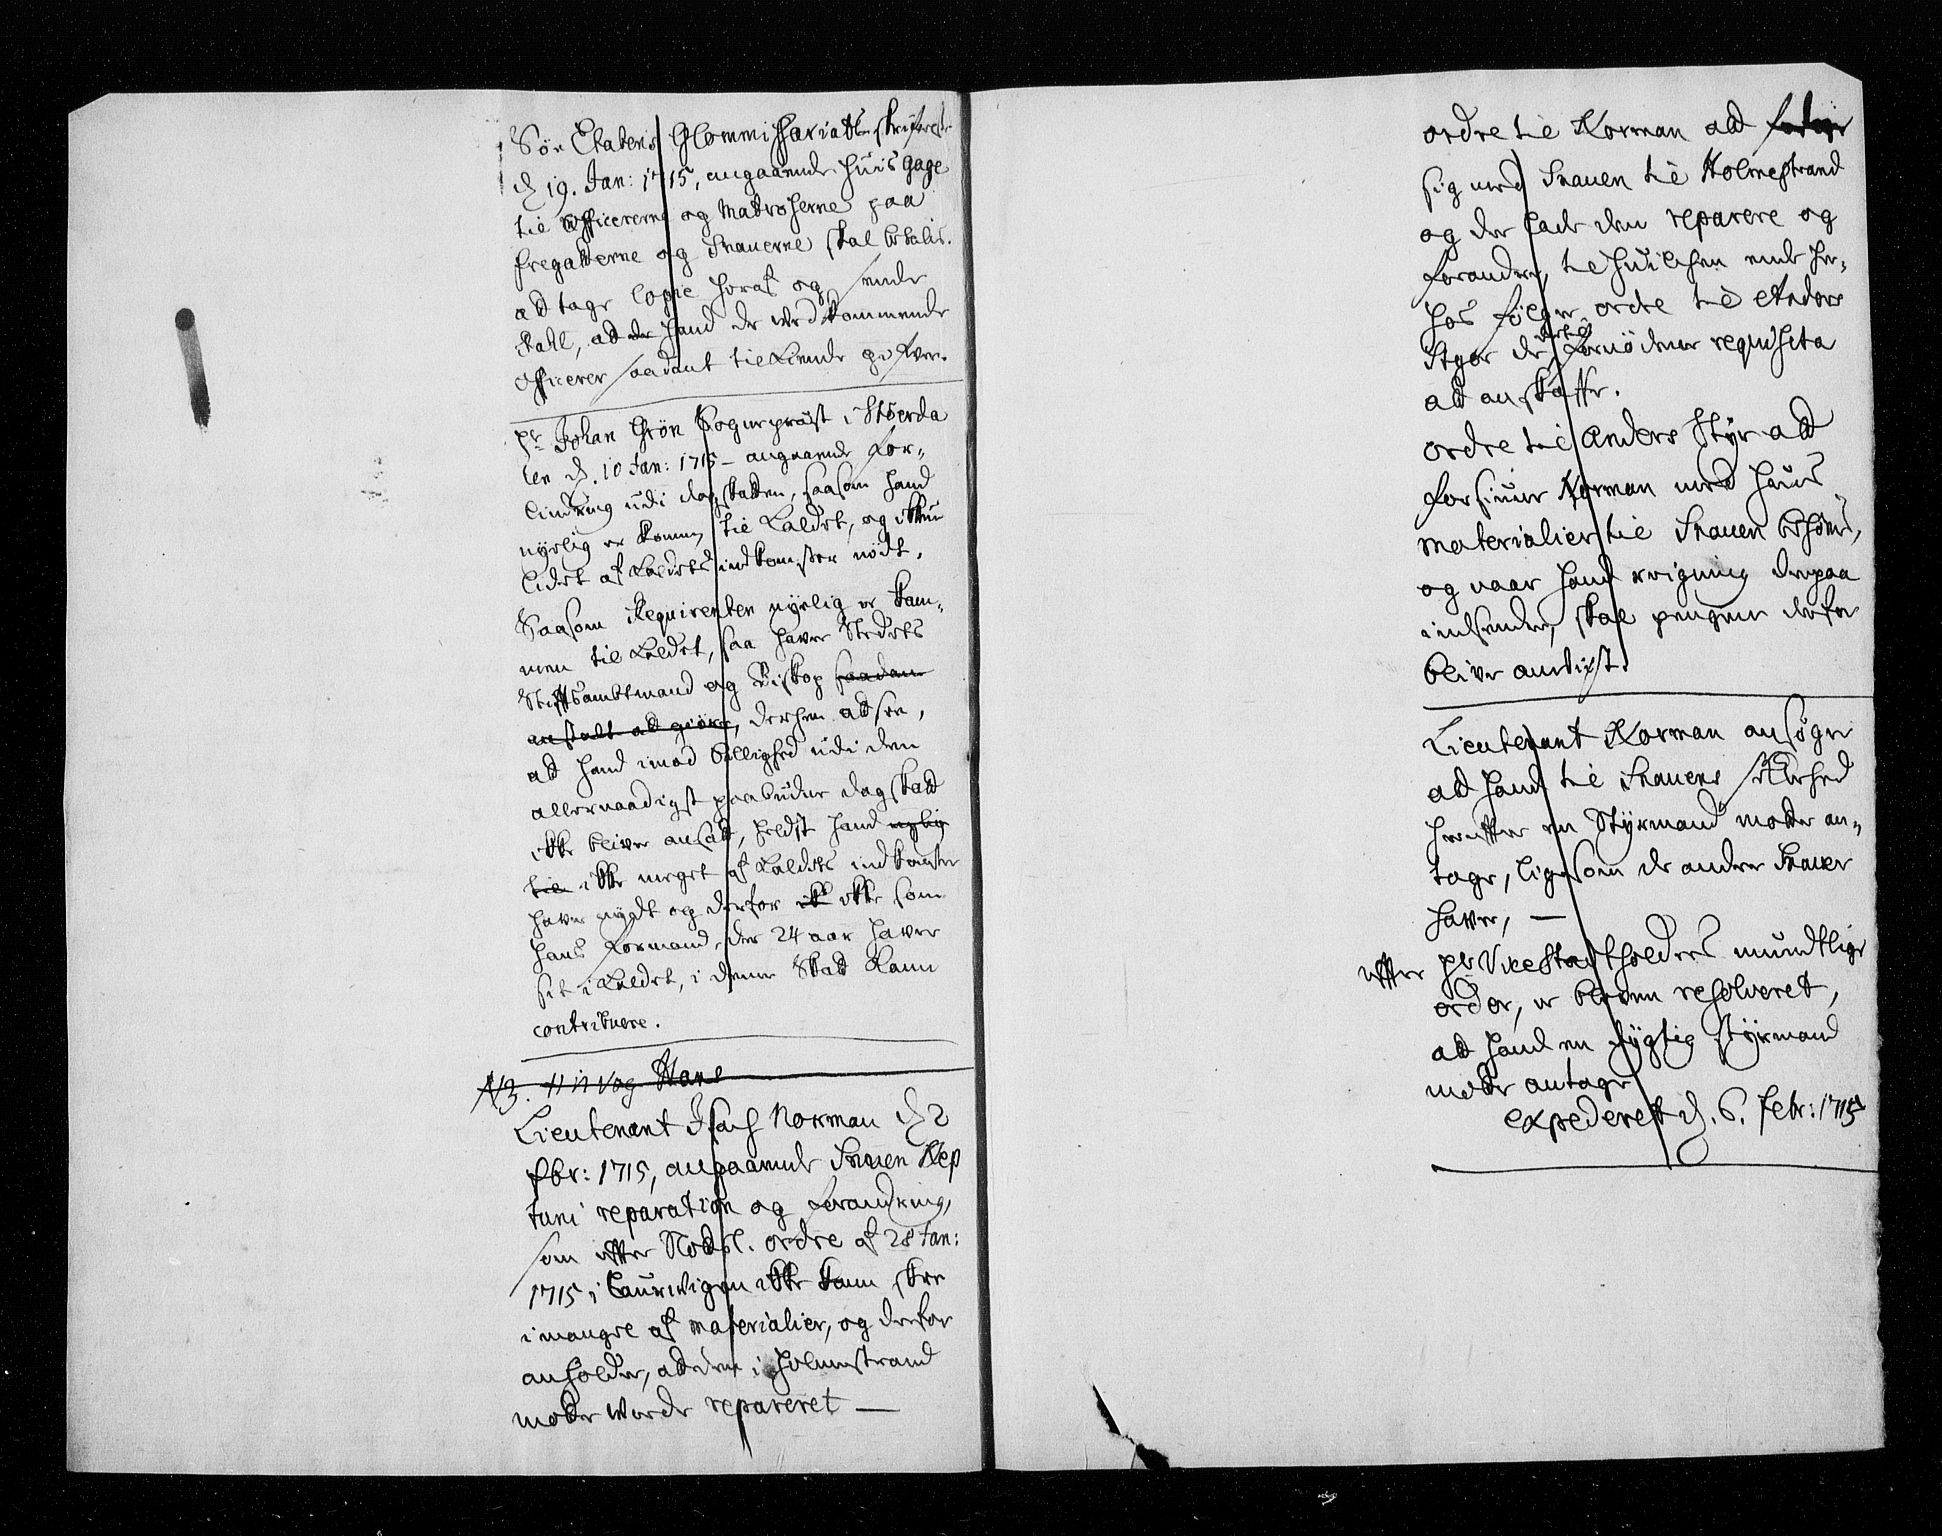 Søe Etatens Commissariatts skrifvelse
d. 19. Jan: 1715, angaaende huis gage
til Officererne og Matroserne paa
fregatterne og Snauerne skal betalis.
at tage Copie heraf og sende
Stahl, ad hand de vedkommende
Officerer saadant tilkiende gifver.
Hr. Johan Grøn Sogneprest i Støerda
len d. 10 Jan: 1715 – angaaende for-
lindring udi dagskatten, saasom hand
nylig er kommen til Kaldet, og ikkun
lidet af Kaldets indkomster nødt.
Saasom Requirenten nylig er kom-
men til Kaldet, saa haver Stedets
Stifftsambtmand og Biskop saadan
anstalt ad giøre, derhen ad see,
ad hand imod billighed udi den
allernaadigst paabudne dagskatt
ikke bliver ansatt, helst hand nylig
til ikke meget af Kaldets indkomster
haver nydt og derfor ikke som
hans formand, der 24 aar haver
sit i Kaldet, i denne Skatt kand
contribuere.
NB.
Lieutenant Isach Norman d. 2
febr: 1715, angaaende Snauen Nep
tuni reparation og forandring,
som effter ordre af 28 Jan:
1715 i Laurwigen ikke kand skee
i mangel af materialier, og derfor
anholder, at den i Holmestrand
motte worde repareret —
ordre til Norman att
sig med Snauen til Holmestrand
og der lade den reparere og
forandre, til hvilchen ende her-
hos følger ordre til Anders
Styr de dertil fornødene requisita
att anskaffe.
ordre til Anders Styr att
forsiune Norman med huis
Materialier til Snauen behøves,
og naar hand reigning derpaa
indsender, skal pengene derfor
blive anvist.
Lieutenant Norman ansøger
att hand til Snauens sikerhed
hereffter en Styrmand motte an-
tage, ligesom de andre Snauer
haver, —
effter Hr. Vice Statholders mundtlige
ordre, er bleven resolveret,
att hand en dygtig styrmand
motte antage
expederet d. 6. febr: 1715